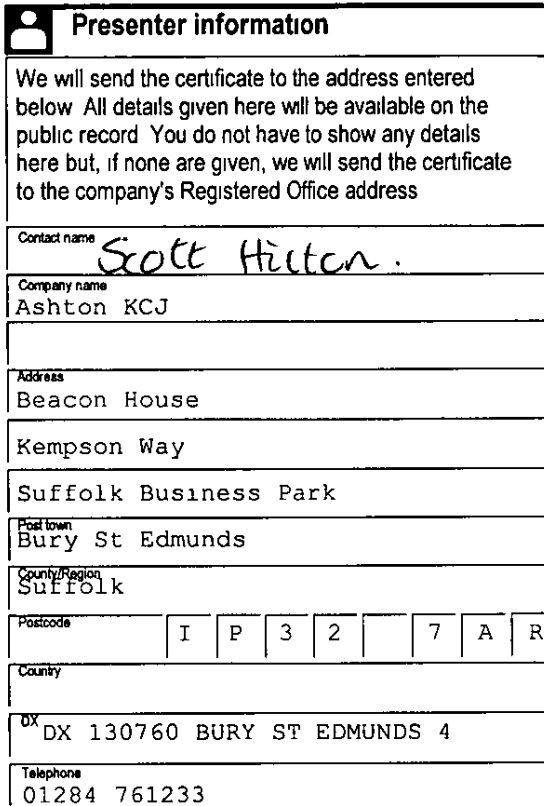 Presenter information
We will send the certificate to the address entered
below All details given here will be available on the
public record You do not have to show any details
here but, if none are given, we will send the certificate
to the company's Registered Office address
Contact name Scott Hilton.
Company name
Ashton KCJ
Address
Beacon House
Kempson Way
Suffolk Business Park
Post town
Bury St Edmunds
County/Region
Suffolk
Postcode I P 3 2 7 A R
Country
DX DX 130760 BURY ST EDMUNDS 4
Telephone
01284 761233